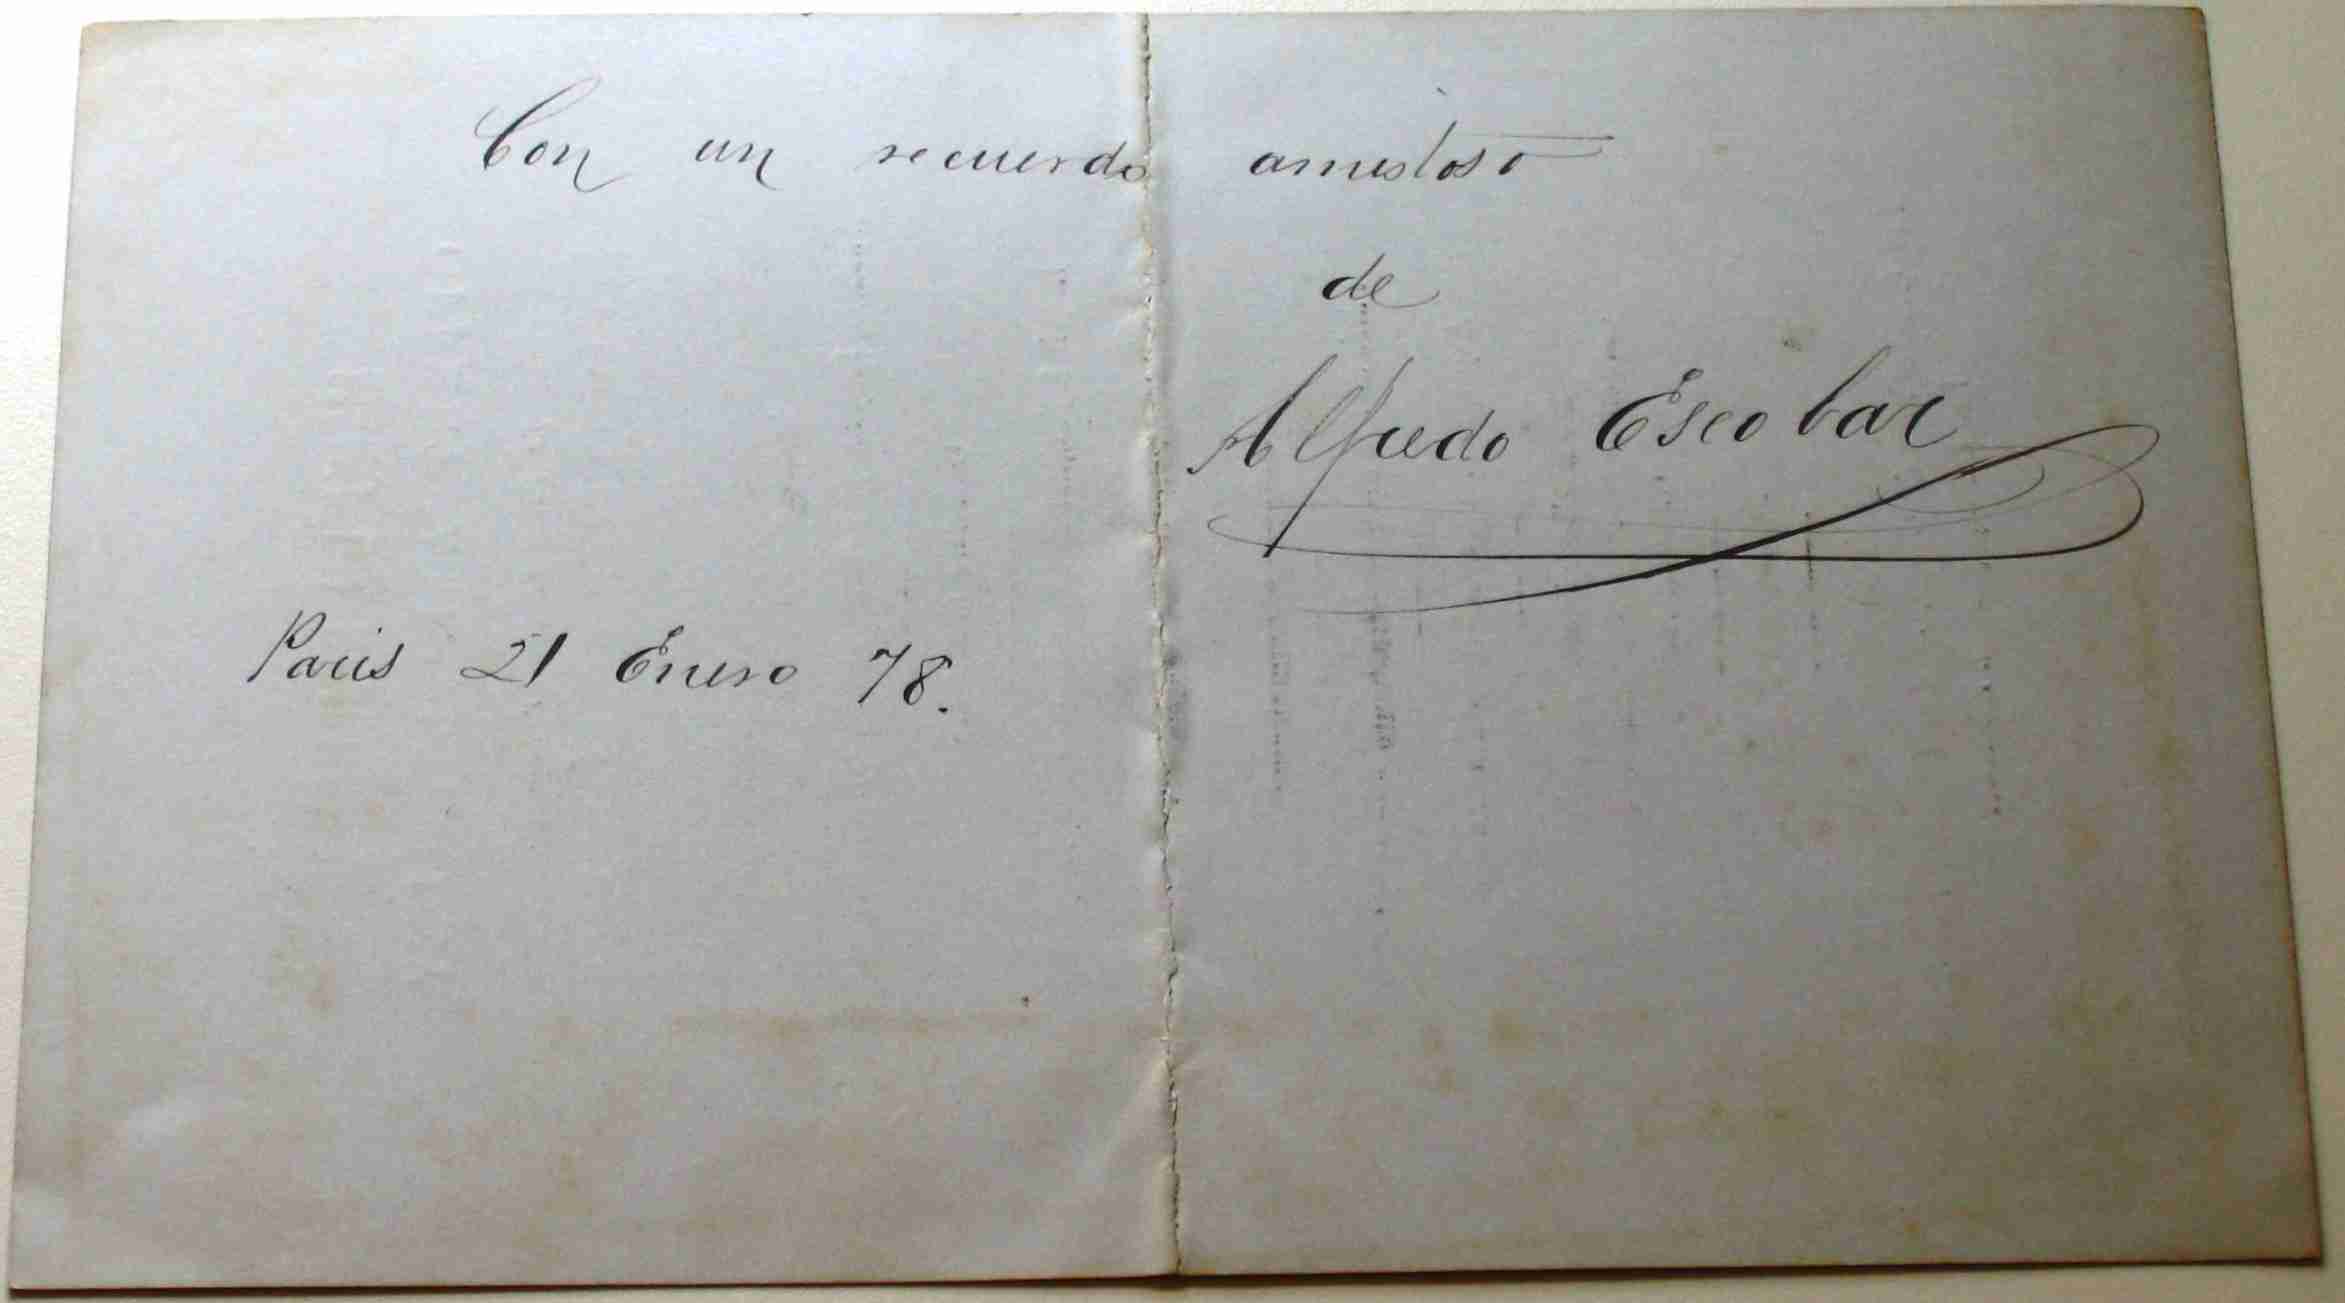 Con un recuerdo amistoso
de
Alfredo Escobar
Paris 21 Enero 78.